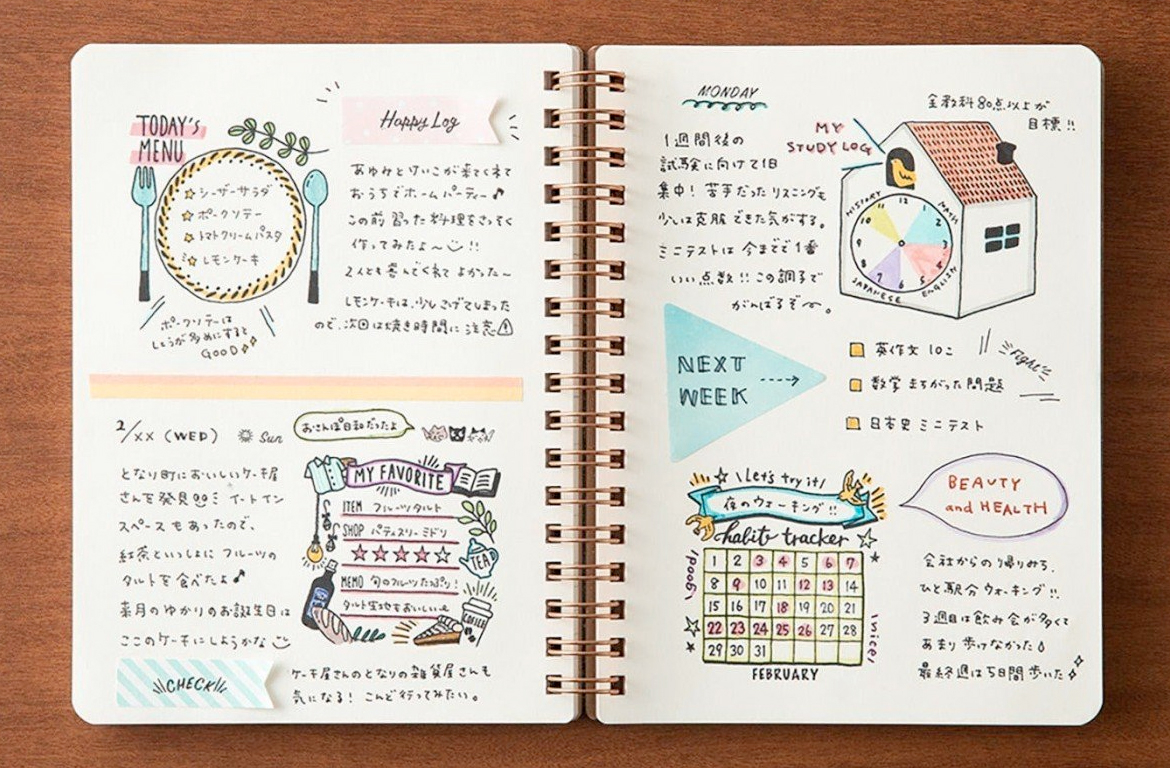 TODAY's
MENU
シーザーサラダ
ポークソテー
トマトクリームパスタ
レモンケーキ
ポークソテーは
しょうが多めにすると
GOOD
Happy Log
あゆみとけいこが来てくれて
おうちでホームパーティー♪
この前習った料理をさっそく
作ってみたよ〜!!
2人とも喜んでくれて よかった〜
レモンケーキは、少しこげてしまった
ので、次回は焼き時間に注意
2/XX (WED) Sun
おさんぽ日和だったよ
となり町においしいケーキ屋
さんを発見!! イートイン
スペースもあったので、
紅茶といっしょに フルーツの
タルトを食べたよ♪
来月のゆかりのお誕生日は
ここのケーキにしようかな
MY FAVORITE
ITEM フルーツタルト
SHOP パティスリーミドリ
TEA
MEMO 旬のフルーツたっぷり!
タルト生地もおいしい
COFFEE
CHECK!
ケーキ屋さんのとなりの雑貨屋さんも
気になる! こんど行ってみたい。
MONDAY
1週間後の
試験に向けて1日
集中! 苦手だったリスニングも
少しは克服できた気がする。
ミニテストは 今までで1番
いい点数!! この調子で
がんばるぞ〜。
MY
STUDY LOG
全教科80点以上が
目標!!
HISTORY
MATH
JAPANESE
ENGLISH
12
1
2
3
4
5
6
7
8
9
10
11
NEXT
WEEK
英作文 10こ
数学 まちがった問題
日本史 ミニテスト
Fight
Let's try it!
夜のウォーキング!!
habits tracker
good
1 2 3 4 5 6 7
8 9 10 11 12 13 14
15 16 17 18 19 20 21
22 23 24 25 26 27 28
29 30 31
nice
FEBRUARY
BEAUTY
and HEALTH
会社からの帰りみち、
ひと駅分ウォーキング!!
3週目は飲み会が多くて
あまり歩けなかった
最終週は5日間歩いた